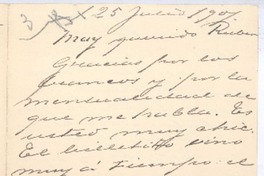 25 Julio 1901
Muy querido Rubén
Gracias por los
francos y por la
mensualidad de
que me habla. Es
usted muy chic.
El billetito vino
muy á tiempo: el